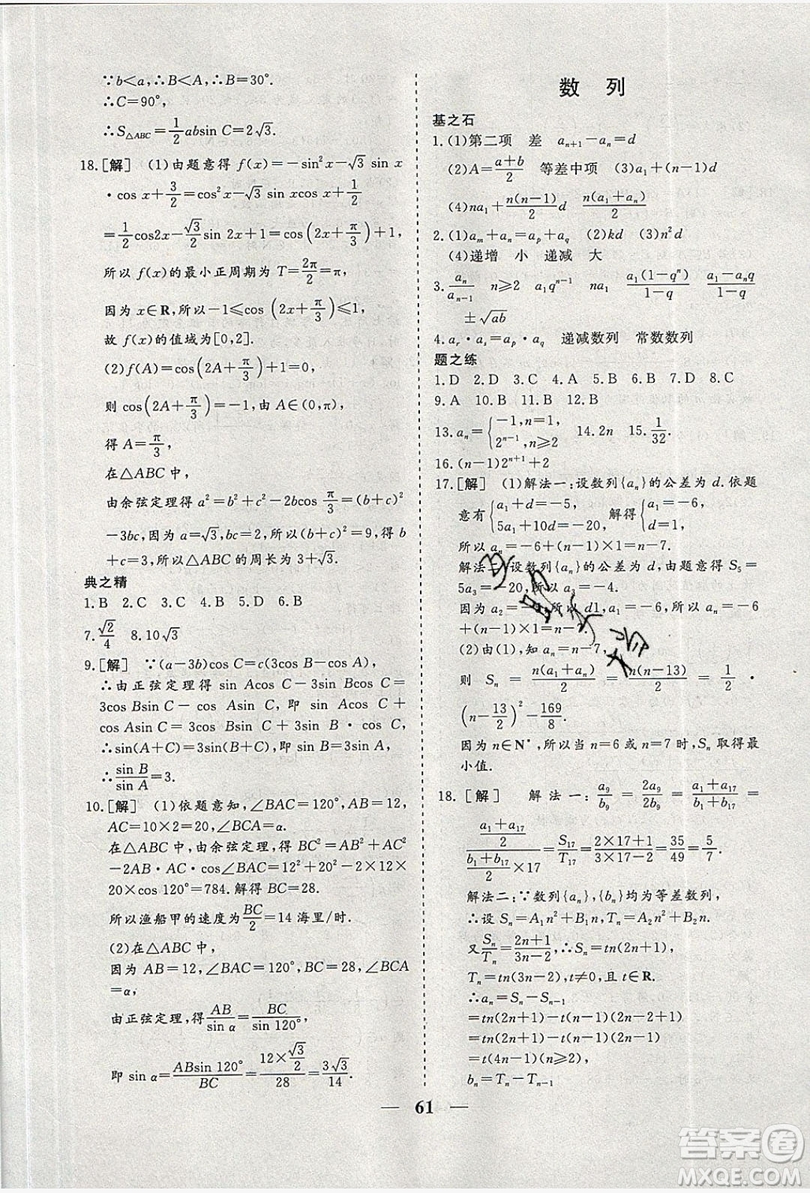 ∵b<a,∴B<A,∴B=30°.
∴C=90°,
∴S△ABC=1/2absin C=2√3.
18.[解] (1)由题意得 f(x)=-sin²x-√3 sin x
·cos x+3/2=cos²x-√3 sin xcos x+1/2
=1/2cos2x-√3/2sin 2x+1=cos(2x+π/3)+1.
所以 f(x)的最小正周期为 T=2π/2=π.
因为 x∈R,所以-1≤cos(2x+π/3)≤1,
故 f(x)的值域为[0,2].
(2)f(A)=cos(2A+π/3)+1=0,
则 cos(2A+π/3)=-1,由 A∈(0,π),
得 A=π/3,
在△ABC中,
由余弦定理得 a²=b²+c²-2bccos π/3=(b+c)²
-3bc,因为 a=√3,所以(b+c)²=9,得 b+c
=3,所以,△ABC 的周长为 3+√3.
典之精
1.B 2.C 3.C 4.D 5.D 6.B
7.√2/4 8.10√3
9.[解] ∵(a-3b)cos C=c(3cos B-cos A),
∴由正弦定理得 sin Acos C-3sin Bcos C=
3cos Bsin C-cos Asin C,即 sin Acos C+
cos Asin C=3sin Bcos C+3cos B·sin C,
∴sin(A+C)=3sin(B+C),即 sin B=3sin A,
∴sin B/sin A=3.
10.[解] (1)依题意知,∠BAC=120°,AB=12,
AC=10×2=20,∠BCA=α.
在△ABC 中,由余弦定理得 BC²=AB²+AC²
-2AB·AC·cos∠BAC=12²+20²-2×12×20
×cos 120°=784.解得 BC=28.
所以渔船甲的速度为BC/2=14 海里/时.
(2)在△ABC 中,
因为 AB=12,∠BAC=120°,BC=28,∠BCA
=α,
由正弦定理,得AB/sin α=BC/sin 120°,
即 sin α=ABsin 120°/BC=(12×√3/2)/28=3√3/14.
数 列
基之石
1.(1)第二项 差 aₙ₊₁-aₙ=d
(2)A=(a+b)/2 等差中项 (3)a₁+(n-1)d
(4)na₁+n(n-1)/2 d n(a₁+aₙ)/2
2.(1)aₘ+aₙ=aₚ+a_q (2)kd (3)n²d
(4)递增 小 递减 大
3.aₙ/aₙ₋₁ n≥2 a₁qⁿ⁻¹ na₁ a₁(1-qⁿ)/(1-q) (a₁-aₙq)/(1-q)
±√ab
4.aᵣ·aₛ=aₚ·a_q 递减数列 常数数列
题之练
1.D 2.D 3.C 4.C 5.B 6.D 7.D 8.C
9.A 10.B 11.B 12.B
13.aₙ={-1,n=1, 2ⁿ⁻¹,n≥2 14.2n 15.1/32.
16.(n-1)2ⁿ⁺¹+2
17.[解] (1)解法一:设数列{aₙ}的公差为 d.依题
意有{a₁+d=-5, 5a₁+10d=-20,解得{a₁=-6, d=1,
所以 aₙ=-6+(n-1)=n-7.
解法二:设数列{aₙ}的公差为 d,由题意知 S₅=
5a₃=-20,所以 a₃=-4.
因为 a₂=-5,所以 d1,a₁=-6,所以 aₙ=-6
+(n-1)=n-7.
(2)由(1),知 aₙ=n-7,
则 Sₙ=n(a₁+aₙ)/2=n(n-13)/2=1/2·
(n-13/2)²-169/8.
因为 n∈N*,所以当 n=6 或 n=7 时,Sₙ取得最
小值.
18.[解] 解法一:a₉/b₉=2a₉/2b₉=(a₁+a₁₇)/(b₁+b₁₇)=
((a₁+a₁₇)/2)/((b₁+b₁₇)/2×17)=S₁₇/T₁₇=(2×17+1)/(3×17-2)=35/49=5/7.
解法二:∵数列{aₙ},{bₙ}均为等差数列,
∴设 Sₙ=A₁n²+B₁n,Tₙ=A₂n²+B₂n.
Tₙ=tn(3n-2),t≠0,且 t∈R.
∴aₙ=Sₙ-Sₙ₋₁
=tn(2n+1)-t(n-1)(2n-2+1)
=tn(2n+1)-t(n-1)(2n-1)
=t(4n-1)(n≥2),
bₙ=Tₙ-Tₙ₋₁
61
答案圈
MXQE.COM